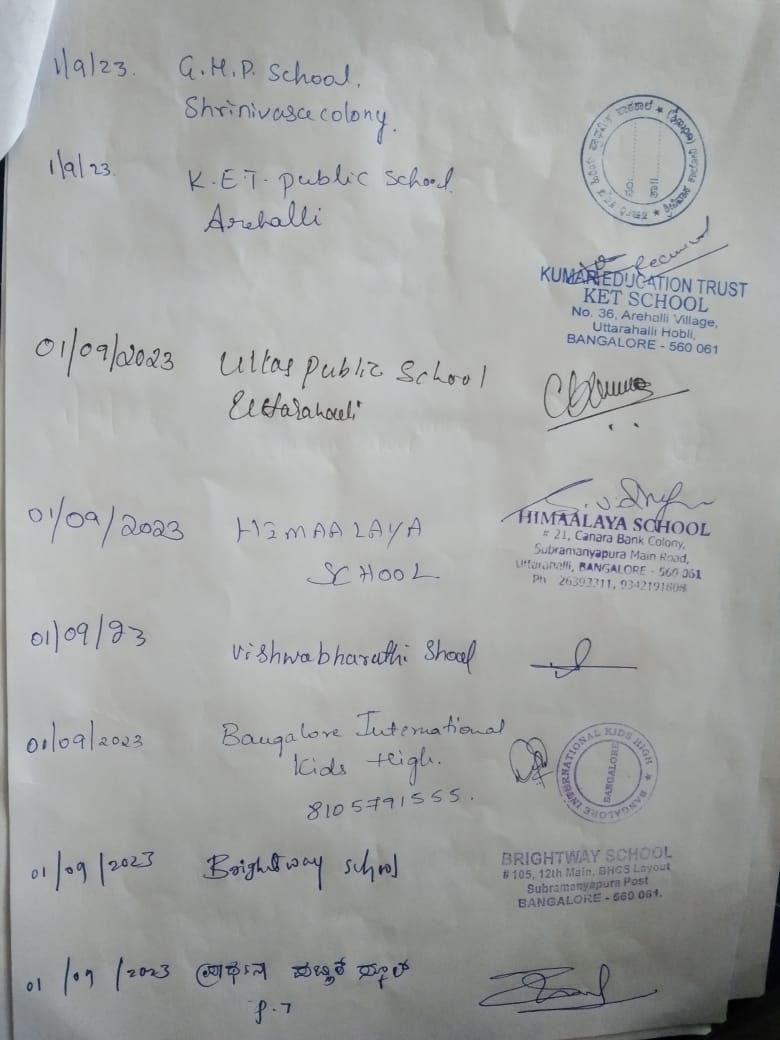 1/9/23. G.H.P. School,
Shrinivasa colony.
1/9/23. K.E.T. public School
Arehalli
Received
KUMAR EDUCATION TRUST
KET SCHOOL
No. 36, Arehalli Village,
Uttarahalli Hobli,
BANGALORE - 560 061
01/09/2023 Public School
01/09/2023 HIMAALAYA
SCHOOL
HIMAALAYA SCHOOL
# 21, Canara Bank Colony,
Subramanyapura Main Road,
Uttarahalli, BANGALORE - 560 061
Ph 26393311, 9342191808
01/09/23 Vishwabharathi Shool
01/09/2023 Bangalore International
Kids High.
8105791555.
BANGALORE INTERNATIONAL KIDS HIGH ★
BANGALORE
01/09/2023 Brightway school
BRIGHTWAY SCHOOL
# 105, 12th Main, BHCS Layout
Subramanyapura Post
BANGALORE - 560 061.
01/09/2023 ಪ್ರಾರ್ಥನ ಪಬ್ಲಿಕ್ ಸ್ಕೂಲ್